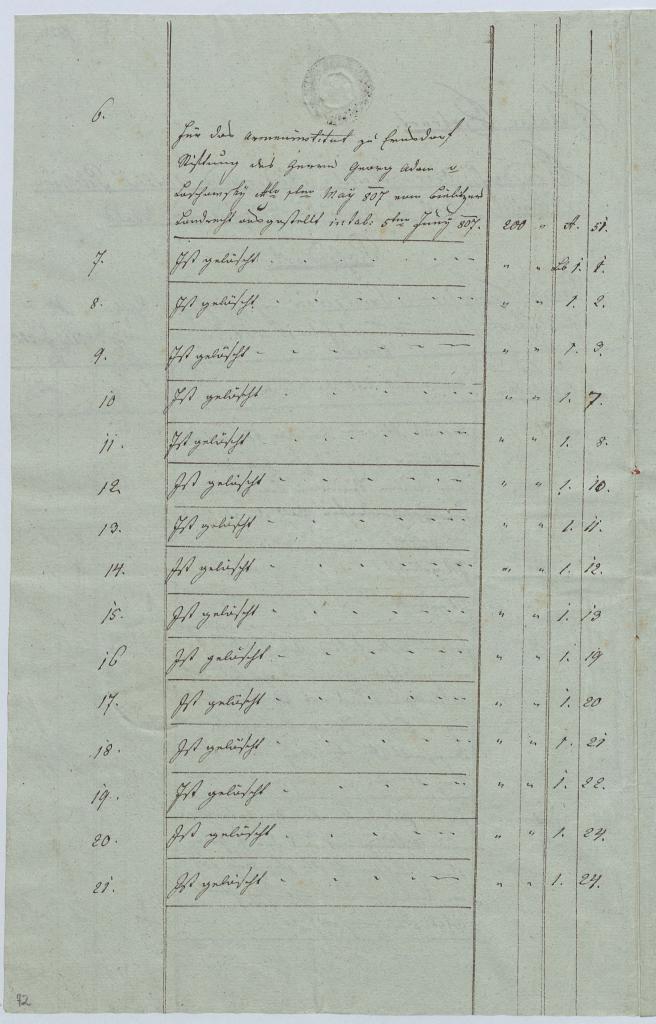 6.
Für das Armeninstitut zu Ernsdorf
Stiftung des Herrn Georg Adam v
Laschowsky dto 1ten May 807 vom Bielitzer
Landrecht ausgestellt intab: 5ten Juny 807. 200 " A. 51.
7. Ist gelöscht " " Lb 1. 1.
8. Ist gelöscht " " 1. 2.
9. Ist gelöscht " " 1. 3.
10 Ist gelöscht " " 1. 7.
11. Ist gelöscht " " 1. 8.
12 Ist gelöscht " " 1. 10.
13. Ist gelöscht " " 1. 11.
14. Ist gelöscht " " 1. 12.
15. Ist gelöscht " " 1. 13
16 Ist gelöscht " " 1. 19
17. Ist gelöscht " " 1. 20
18. Ist gelöscht " " 1. 21
19. Ist gelöscht " " 1. 22.
20. Ist gelöscht " " 1. 24.
21. Ist gelöscht " " 1. 24.
92